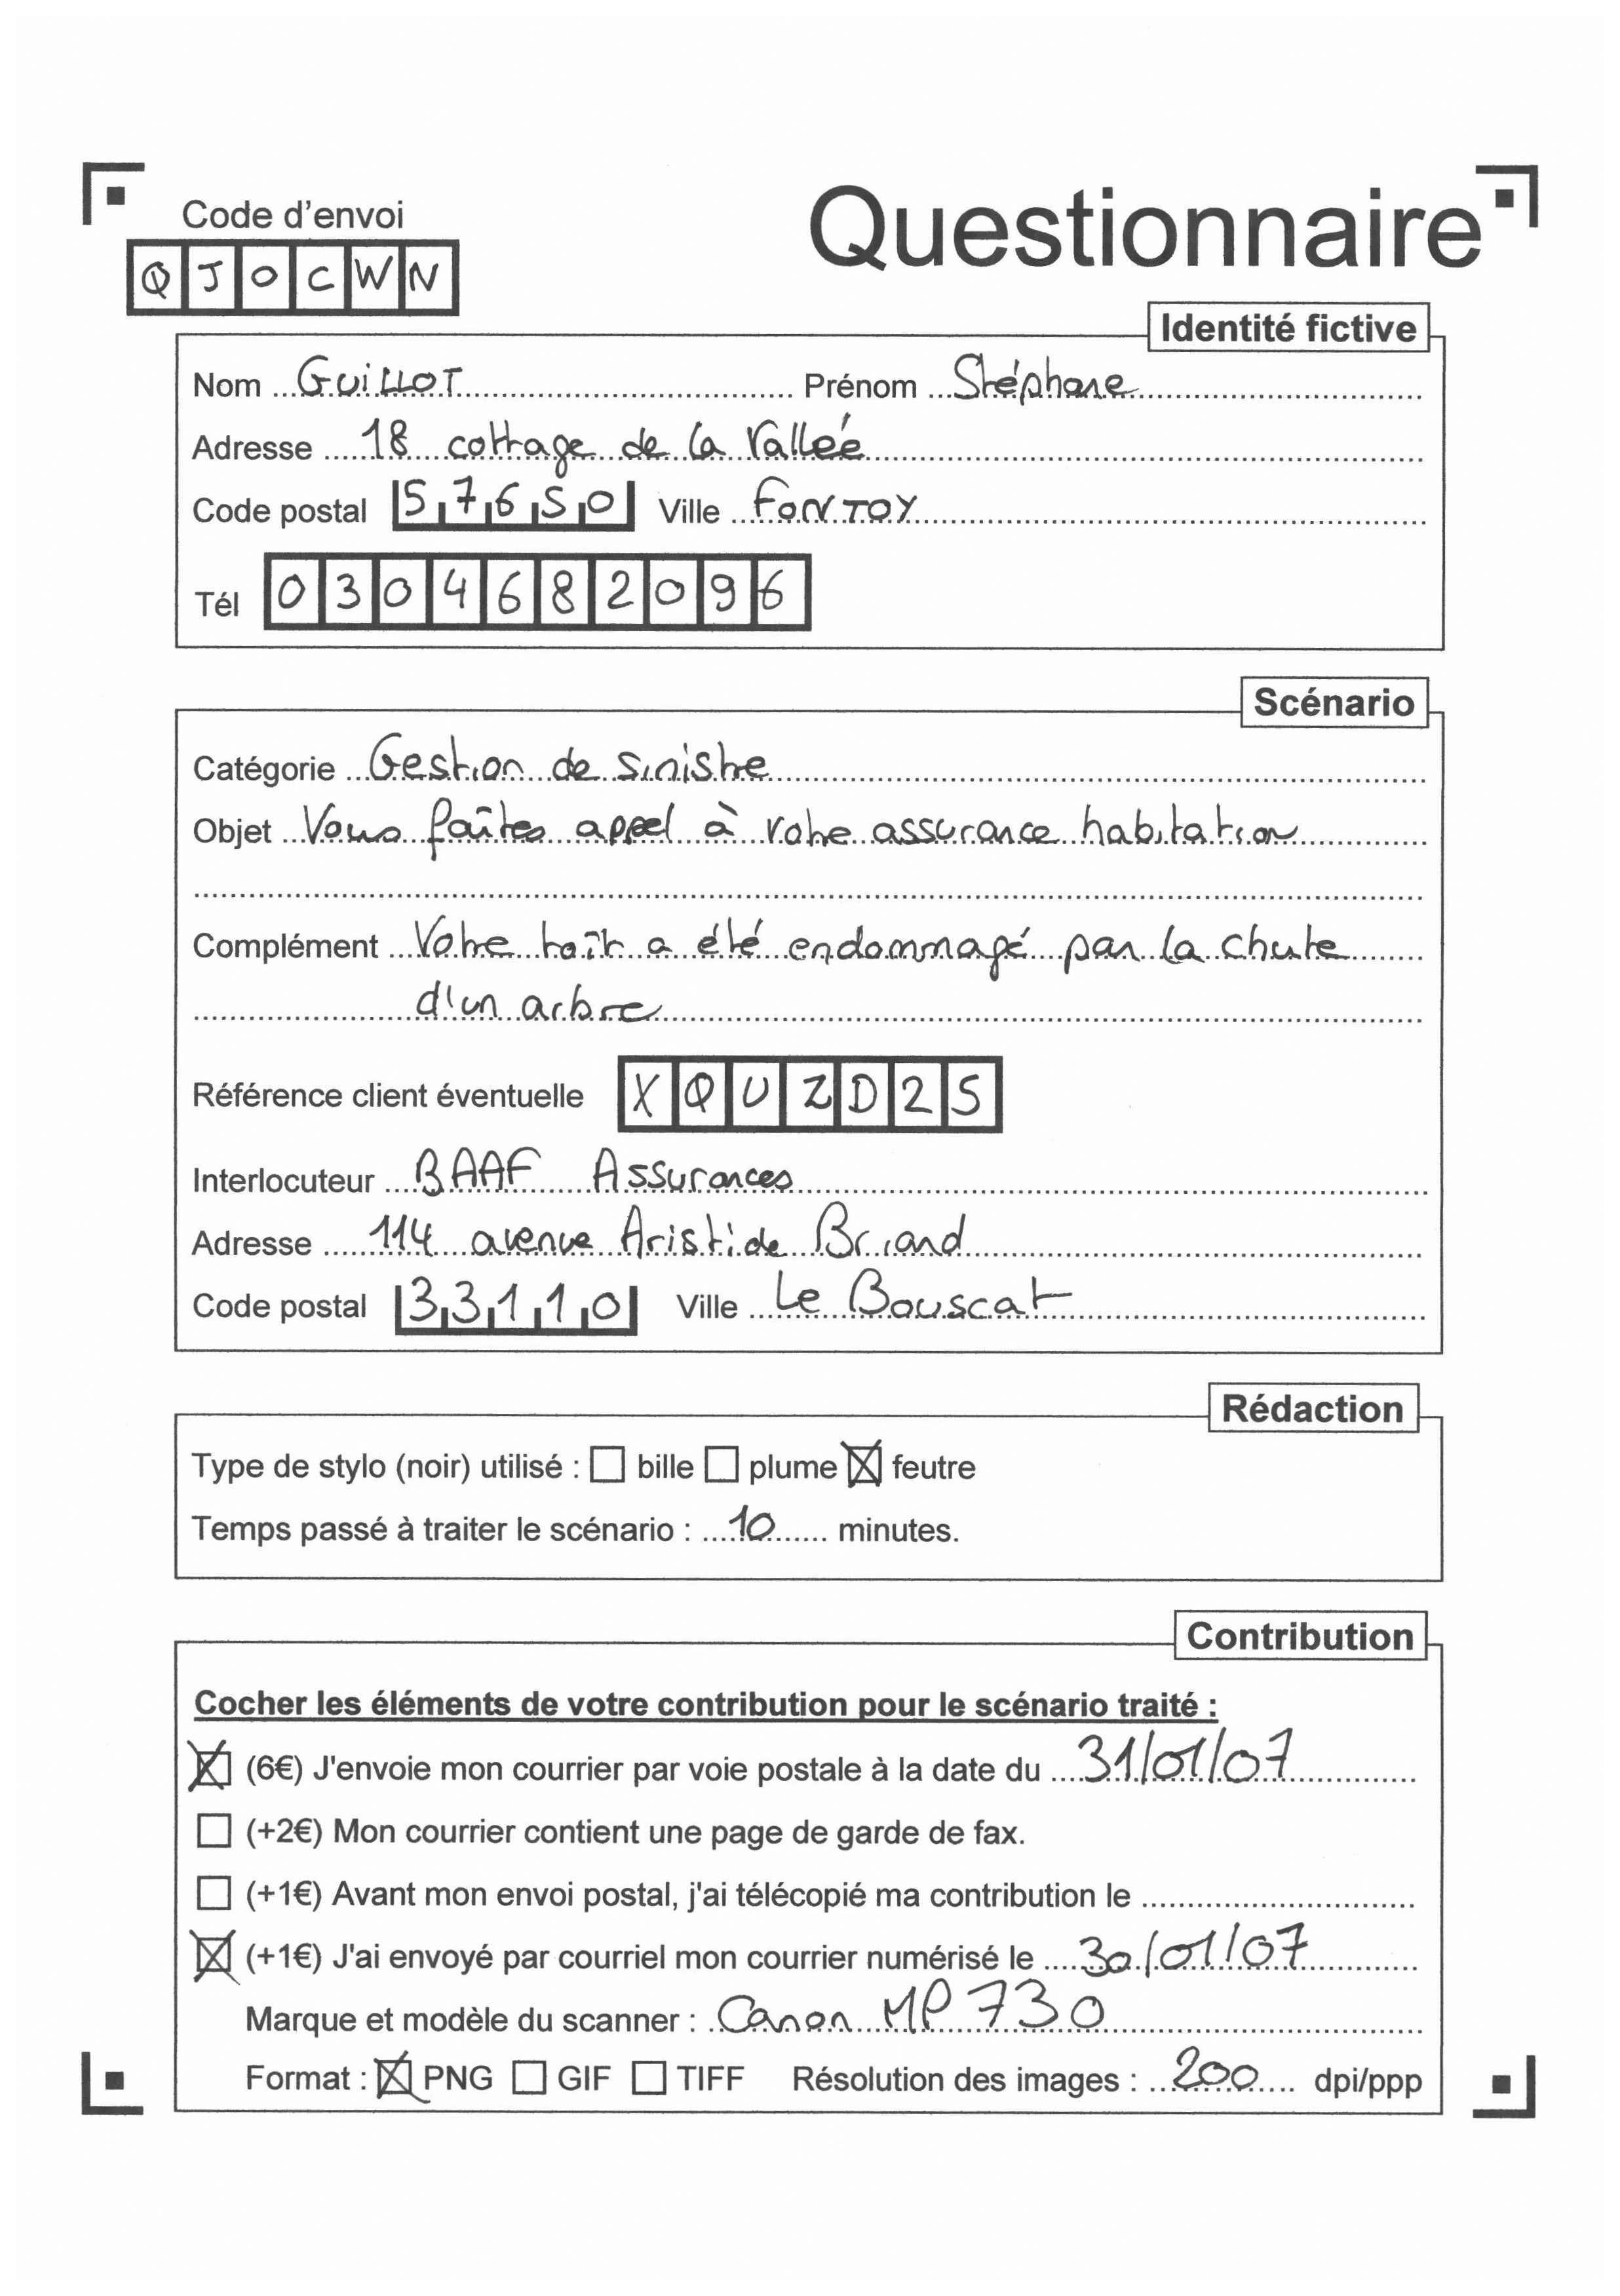 Code d'envoi
Questionnaire
QJOCWN
Identité fictive
Nom GUILLOT Prénom Stéphane
Adresse 18 cottage de la Vallée
Code postal 57650 Ville FONTOY
Tél 0304682096
Scénario
Catégorie Gestion de sinistre
Objet Vous faîtes appel à votre assurance habitation
Complément Votre toît a été endommagé par la chute
d'un arbre
Référence client éventuelle XQUZD25
Interlocuteur BAAF Assurances
Adresse 114 avenue Aristide Briand
Code postal 33110 Ville Le Bouscat
Rédaction
Type de stylo (noir) utilisé : ☐ bille ☐ plume ☒ feutre
Temps passé à traiter le scénario : 10 minutes.
Contribution
Cocher les éléments de votre contribution pour le scénario traité :
☒ (6€) J'envoie mon courrier par voie postale à la date du 31/01/07
☐ (+2€) Mon courrier contient une page de garde de fax.
☐ (+1€) Avant mon envoi postal, j'ai télécopié ma contribution le
☒ (+1€) J'ai envoyé par courriel mon courrier numérisé le 30/01/07
Marque et modèle du scanner : Canon MP 730
Format : ☒ PNG ☐ GIF ☐ TIFF Résolution des images : 200 dpi/ppp